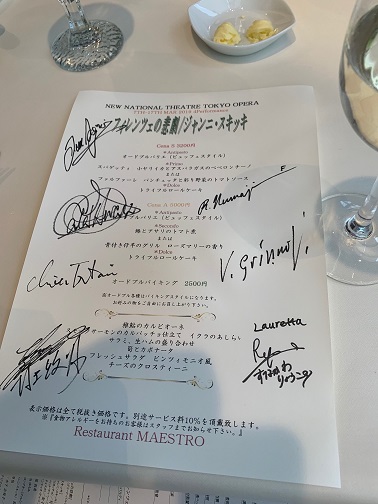 NEW NATIONAL THEATRE TOKYO OPERA
7TH-17TH MAR 2019 4Performance
フィレンツェの悲劇/ジャンニ・スキッキ
Cena S 5200円
※Antipasto
オードブルバリエ（ビュッフェスタイル）
※Primo
スパゲッティ 小ヤリイカとアスパラガスのペペロンチーノ
または
フェルファーレ パンチェッタと彩り野菜のトマトソース
※Dolce
トライフルロールケーキ
Cena A 5200円
※Antipasto
ブルバリエ（ビュッフェスタイル）
※Secondo
鯛とアサリのトマト煮
または
骨付き仔牛のグリル ローズマリーの香り
※Dolce
トライフルロールケーキ
オードブルバイキング 2500円
※オードブル各種はバイキングスタイルになります。
お好みの物をご自由にお召し上がり下さい。
稚鮎のカルピオーネ
サーモンのカルパッチョ仕立て イクラのあしらい
サラミ、生ハムの盛り合わせ
茄子カポナータ
フレッシュサラダ ピンツィモニオ風
チーズのクロスティーニ
Lauretta
表示価格は全て税抜き価格です。別途サービス料10%を頂戴致します。
※『食物アレルギーをお持ちのお客様はスタッフまでお知らせ下さい。』
Restaurant MAESTRO